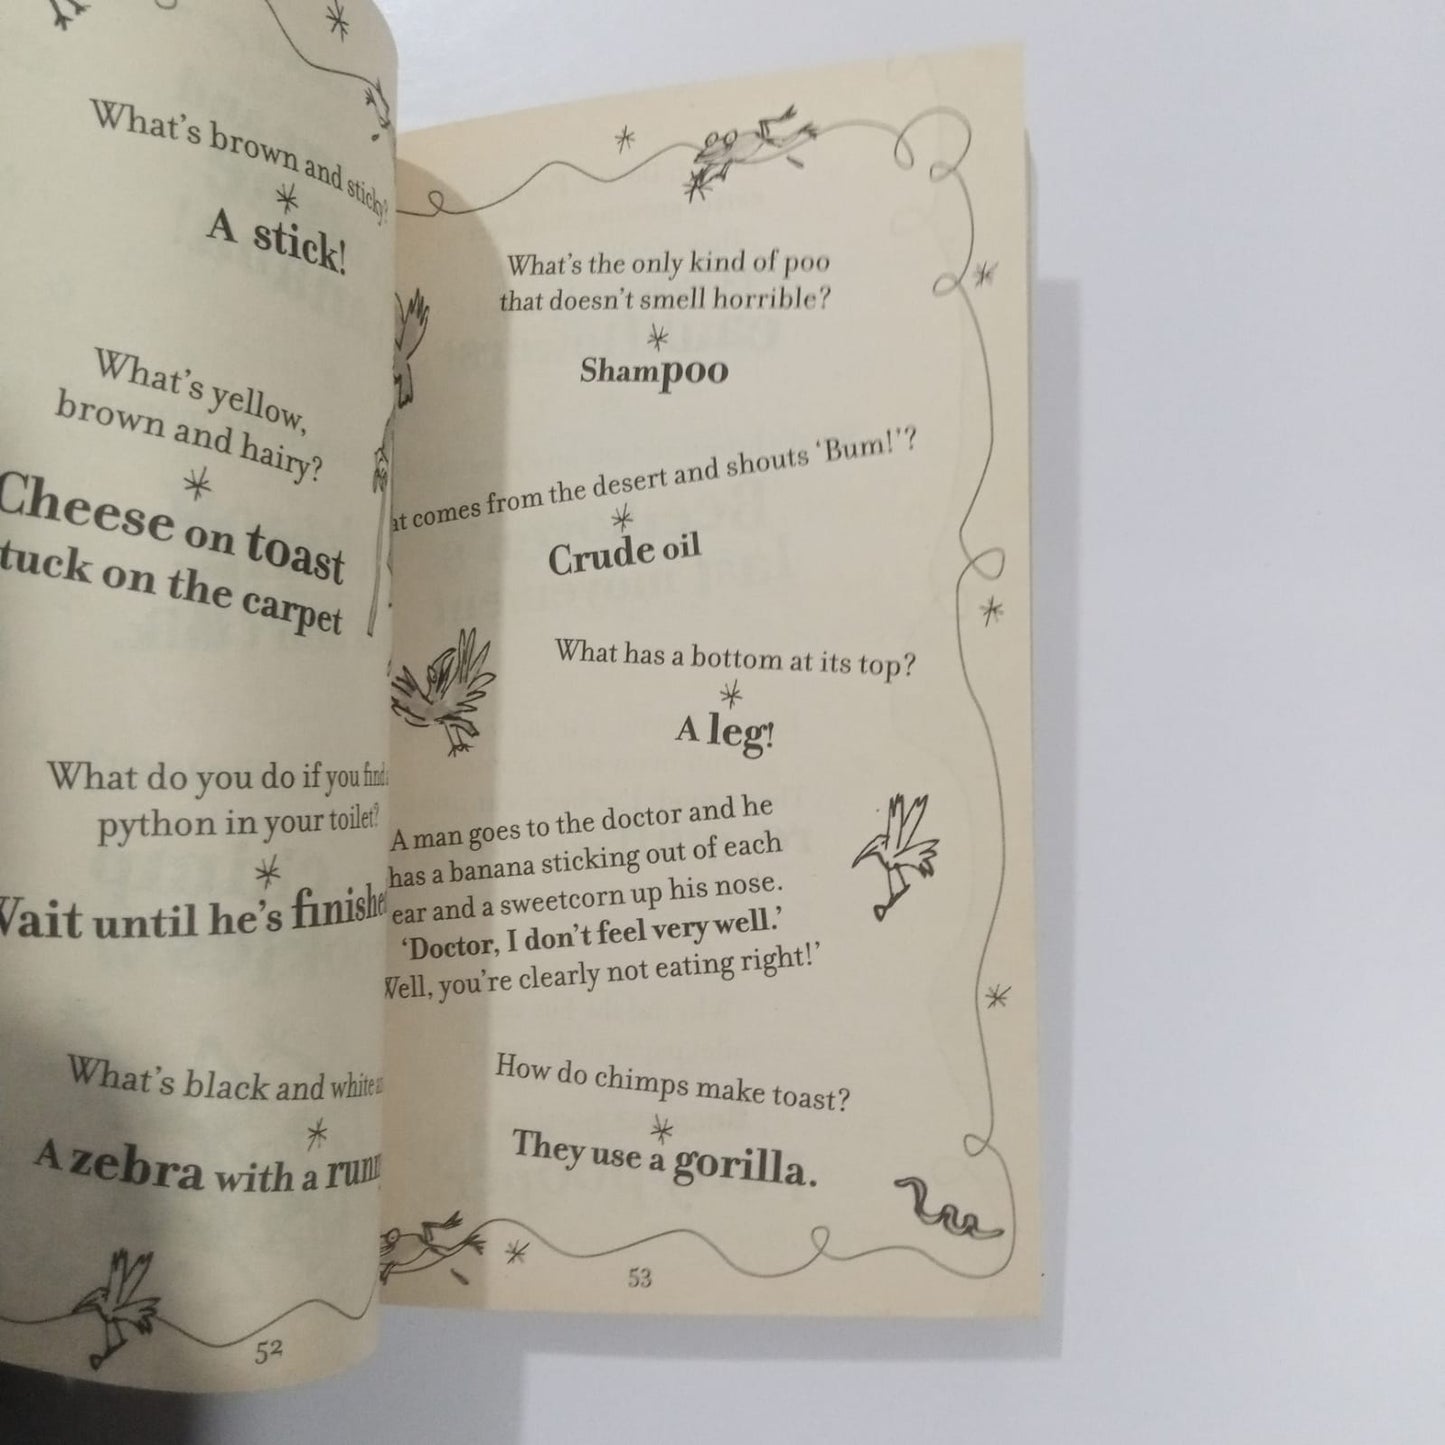 What's brown and sticky?
A stick!
What's yellow,
brown and hairy?
Cheese on toast
tuck on the carpet
What do you do if you find
python in your toilet?
Wait until he's finishe
What's black and white
A zebra with a runn
52
What's the only kind of poo
that doesn't smell horrible?
Shampoo
at comes from the desert and shouts 'Bum!'?
Crude oil
What has a bottom at its top?
A leg!
A man goes to the doctor and he
has a banana sticking out of each
ear and a sweetcorn up his nose.
'Doctor, I don't feel very well.'
Well, you're clearly not eating right!'
How do chimps make toast?
They use a gorilla.
53